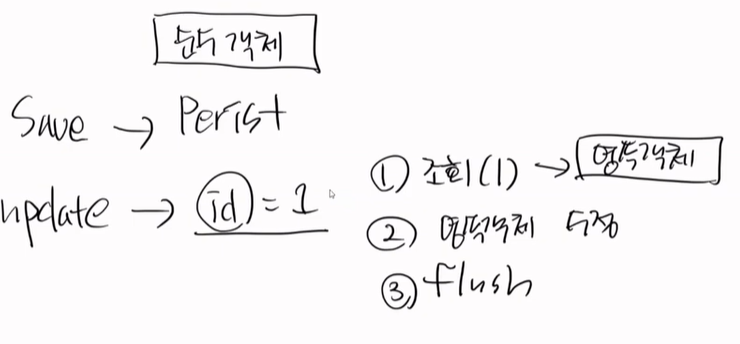 순수 객체
Save → Perist
update → id = 1
① 조회(1) → 영속객체
② 영속객체 수정
③ flush